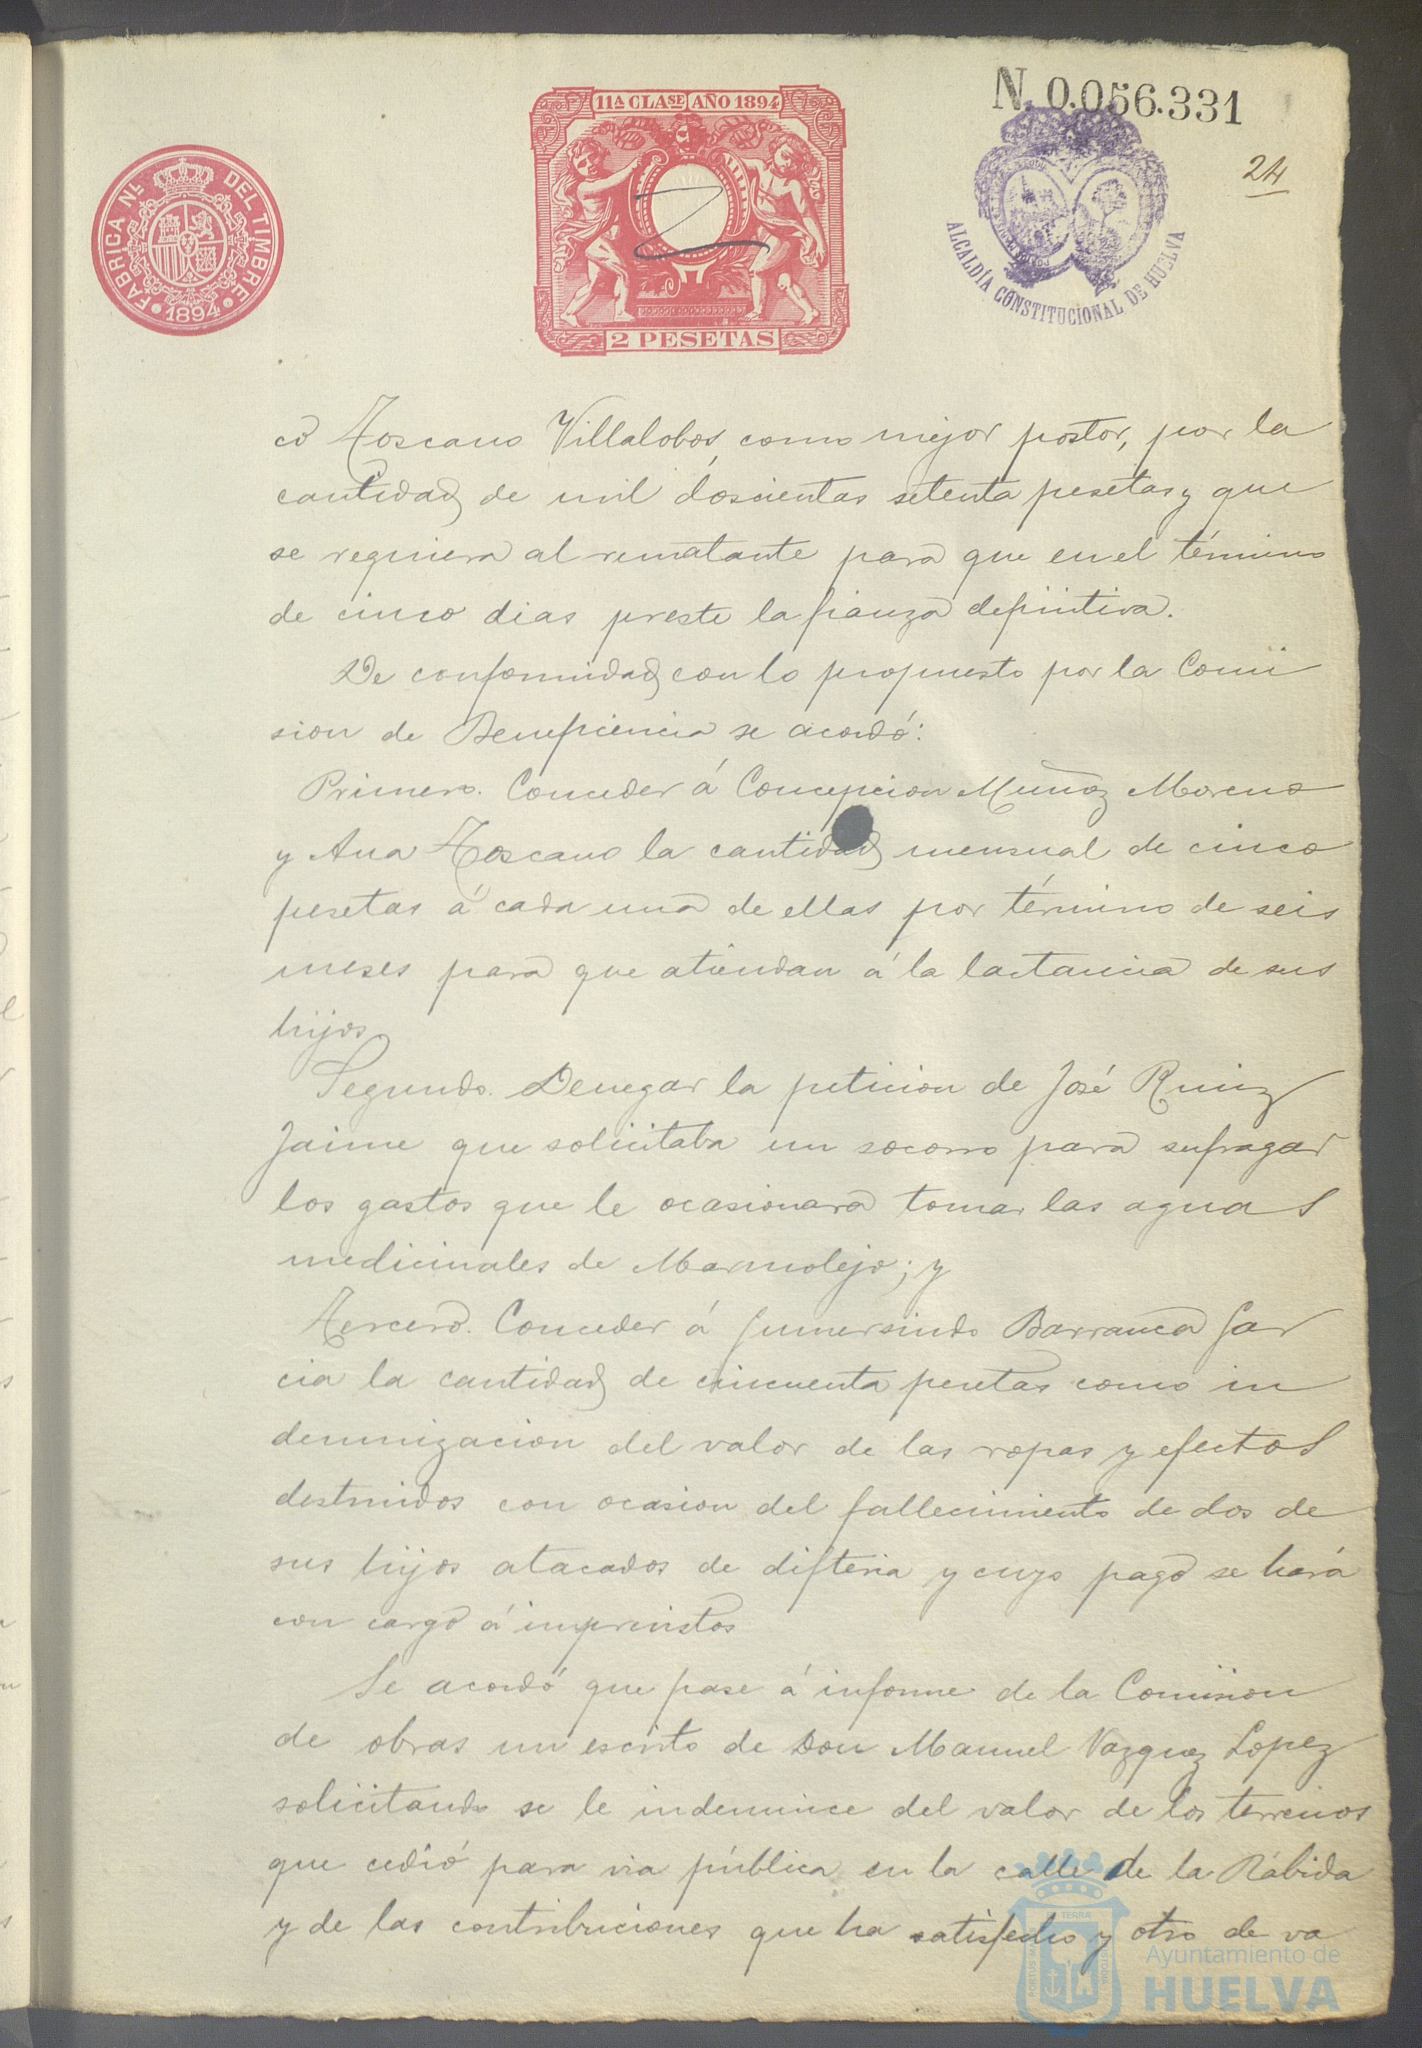 11ª CLASE AÑO 1894
N. 0.056.331
24
FABRICA NL. DEL TIMBRE
1894
2 PESETAS
ALCALDÍA CONSTITUCIONAL DE HUELVA
co Toscano Villalobos, como mejor postor, por la
cantidad de mil doscientas setenta pesetas y que
se requiera al rematante para que en el término
de cinco dias preste la fianza definitiva.
De conformidad con lo propuesto por la Comi
sion de Beneficiencia se acordó:
Primero. Conceder á Concepcion Muñoz Moreno
y Ana Toscano la cantidad mensual de cinco
pesetas á cada una de ellas por término de seis
meses para que atiendan á la lactancia de sus
hijos
Segundo. Denegar la peticion de José Ruiz
Jaime que solicitaba un socorro para sufragar
los gastos que le ocasionara tomar las aguas
medicinales de Marmolejo; y
Tercero. Conceder á Gumersindo Barranca Gar
cia la cantidad de cincuenta pesetas como in
demnizacion del valor de las ropas y efectos
destruidos con ocasion del fallecimiento de dos de
sus hijos atacados de difteria y cuyo pago se hará
con cargo á imprevistos
Se acordó que pase á informe de la Comision
de obras un escrito de Don Manuel Vazquez Lopez
solicitando se le indemnice del valor de los terrenos
que cedió para via pública en la calle de la Rábida
y de las contribuciones que ha satisfecho y otro de va
Ayuntamiento de
HUELVA